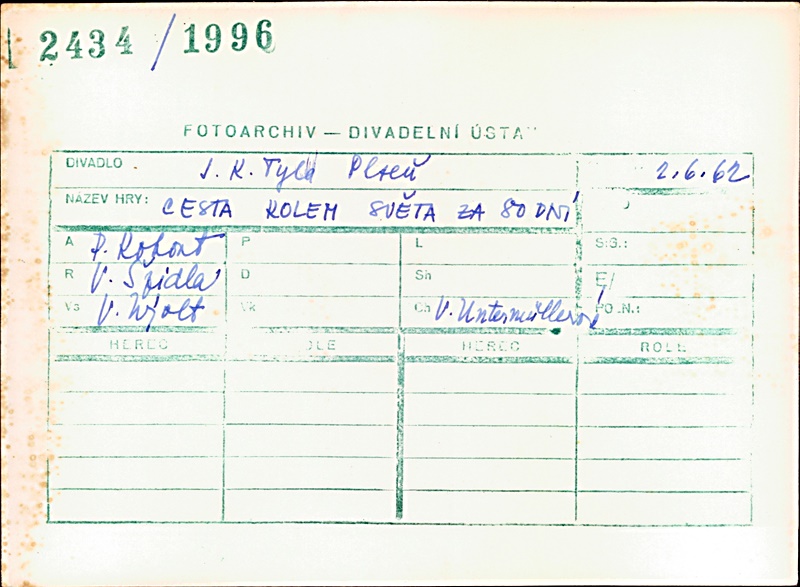 2434 / 1996
FOTOARCHIV — DIVADELNÍ ÚSTAV
DIVADLO J. K. Tyla Plzeň 2.6.62
NÁZEV HRY: CESTA KOLEM SVĚTA ZA 80 DNÍ
A P. Kohout P L SIG.:
R V. Špidla D Sh E/
Vs V. Wjolt Vk Ch V. Untermüllerová PO.N.:
HEREC ROLE HEREC ROLE